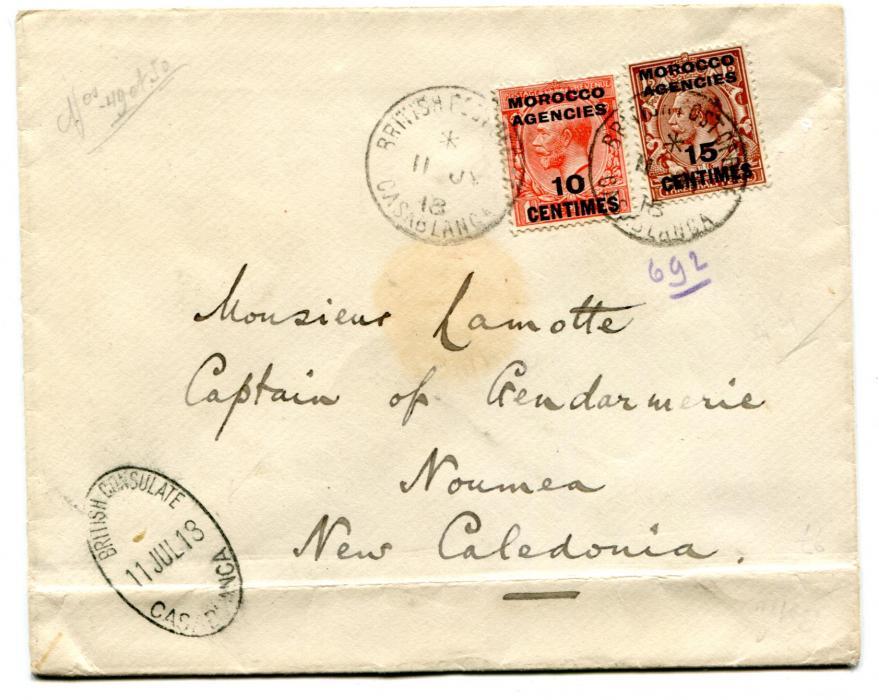 Nos 49 et 50
BRITISH POST
*
11 JY
18
CASABLANCA
MOROCCO
AGENCIES
10
CENTIMES
MOROCCO
AGENCIES
15
CENTIMES
692
Monsieur Lamotte
Captain of Gendarmerie
Noumea
New Caledonia.
BRITISH CONSULATE
11 JUL 18
CASABLANCA